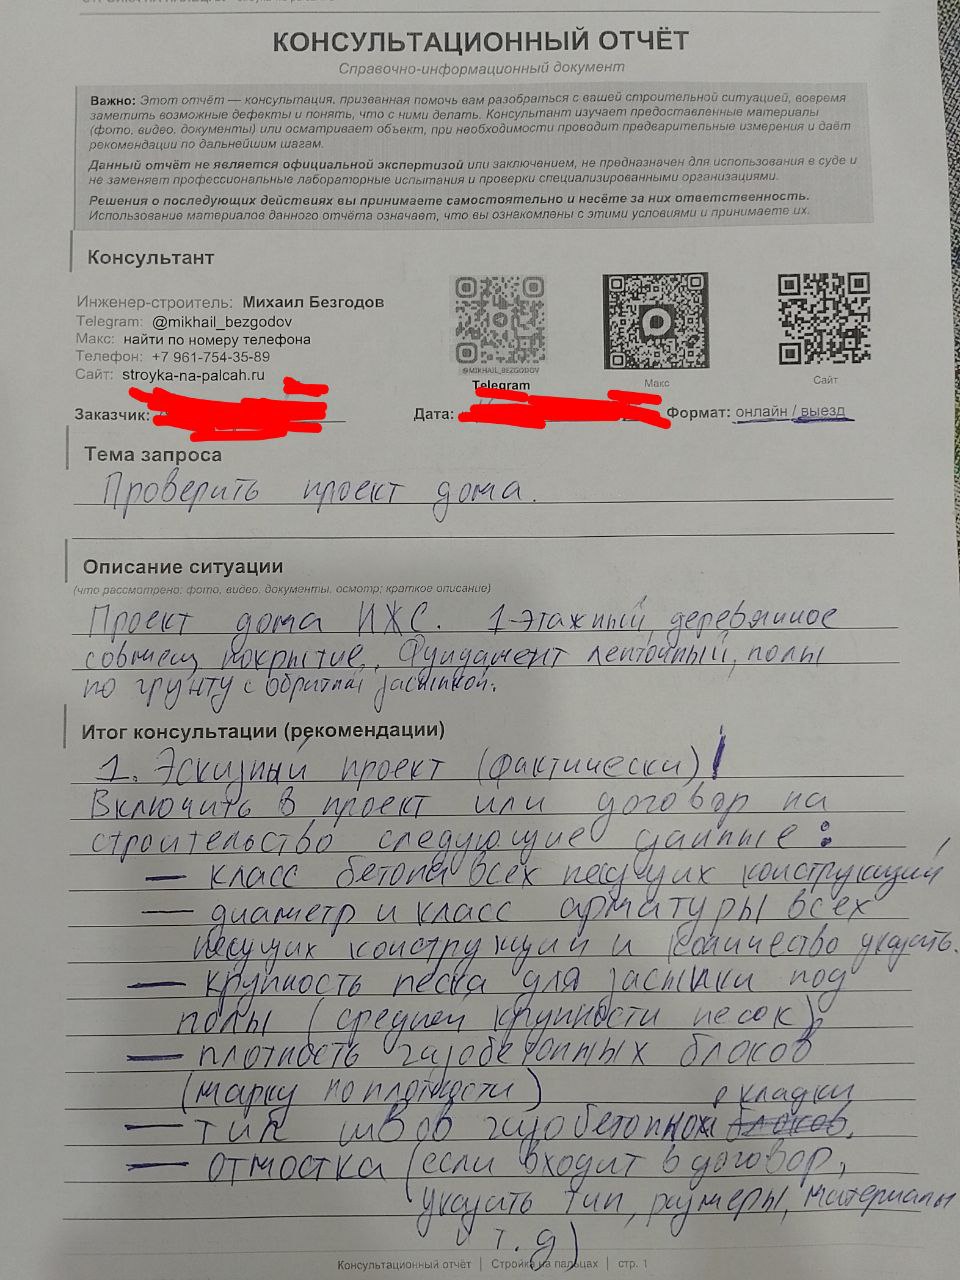 КОНСУЛЬТАЦИОННЫЙ ОТЧЁТ
Справочно-информационный документ
Важно: Этот отчёт — консультация, призванная помочь вам разобраться с вашей строительной ситуацией, вовремя
заметить возможные дефекты и понять, что с ними делать. Консультант изучает предоставленные материалы
(фото, видео, документы) или осматривает объект, при необходимости проводит предварительные измерения и даёт
рекомендации по дальнейшим шагам.
Данный отчёт не является официальной экспертизой или заключением, не предназначен для использования в суде и
не заменяет профессиональные лабораторные испытания и проверки специализированными организациями.
Решения о последующих действиях вы принимаете самостоятельно и несёте за них ответственность.
Использование материалов данного отчёта означает, что вы ознакомлены с этими условиями и принимаете их.
Консультант
Инженер-строитель: Михаил Безгодов
Telegram: @mikhail_bezgodov
Макс: найти по номеру телефона
Телефон: +7 961-754-35-89
Сайт: stroyka-na-palcah.ru
@MIKHAIL_BEZGODOV
Telegram
Макс
Сайт
Заказчик: Дата: Формат: онлайн / выезд
Тема запроса
Проверить проект дома.
Описание ситуации
(что рассмотрено: фото, видео, документы, осмотр; краткое описание)
Проект дома ИЖС. 1-этажный, деревянное
совмещ. покрытие. Фундамент ленточный, полы
по грунту с обратной засыпкой.
Итог консультации (рекомендации)
1. Эскизный проект (фактически)!
Включить в проект или договор на
строительство следующие данные:
— класс бетона всех несущих конструкций,
— диаметр и класс арматуры всех
несущих конструкций и количество указать.
— крупность песка для засыпки под
полы (средней крупности песок);
— плотность газобетонных блоков
(марку по плотности)
— тип швов газобетонной кладки,
— отмостка (если входит в договор,
указать тип, размеры, материалы
и т.д)
Консультационный отчёт | Стройка на пальцах | стр. 1